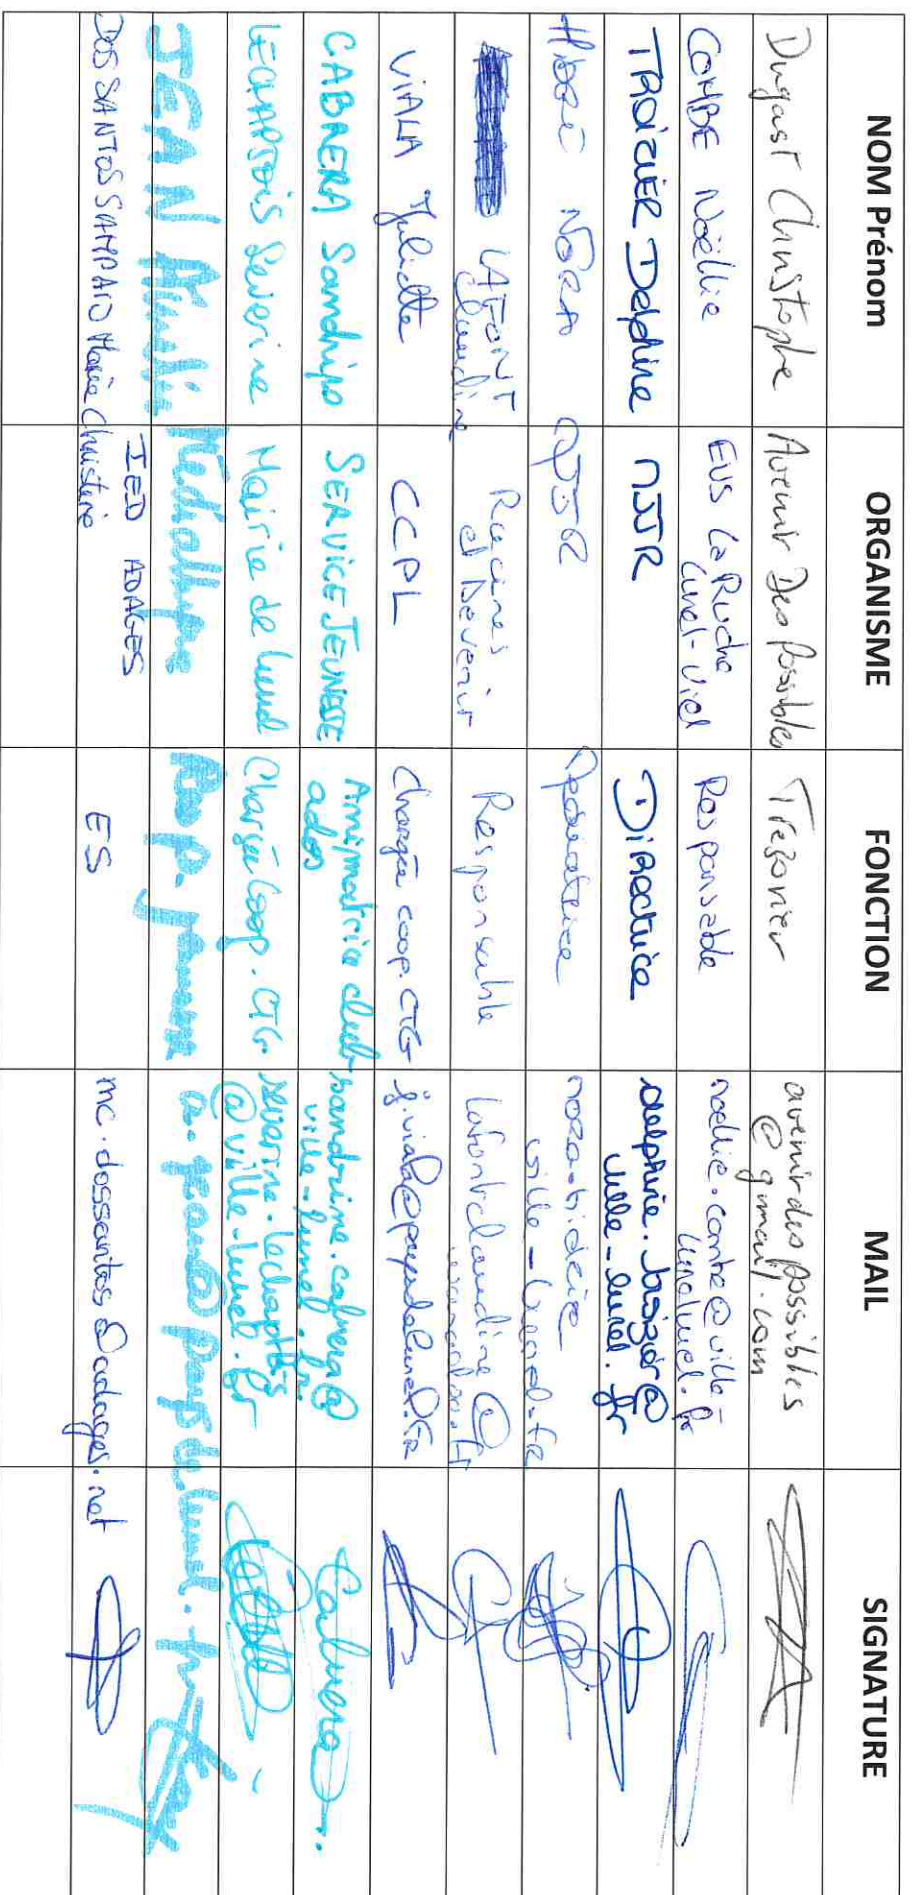 NOM Prénom ORGANISME FONCTION MAIL SIGNATURE
Dugast Christophe Avenir Des Possibles Trésorier avenirdespossibles
@gmail.com
COMBE Noëllie EVS La Ruche Responsable noellie.combe@ville-
Lunel-Viel lunelviel.fr
TROIZIER Delphine Directrice delphine.troizier@
ville-lunel.fr
NORA Médiatrice
ville-lunel.fr
LAFONT Racines Responsable lafontclaudine@
Claudine et Devenir
VIALA Juliette CCPL chargée coop. CTG j.viala@paysdelunel.fr
CABRERA Sandrine SERVICE JEUNESSE Animatrice club sandrine.cabrera@
ados ville-lunel.fr
LECHAPTOIS Severine Mairie de Lunel Chargée Coop. CTG. severine.lechaptois
@ville-lunel.fr
JEAN Amélie Médiathèque Resp.
DOS SANTOS SAMPAIO Marie Christine IED ADAGES ES mc.dossantos@adages.net